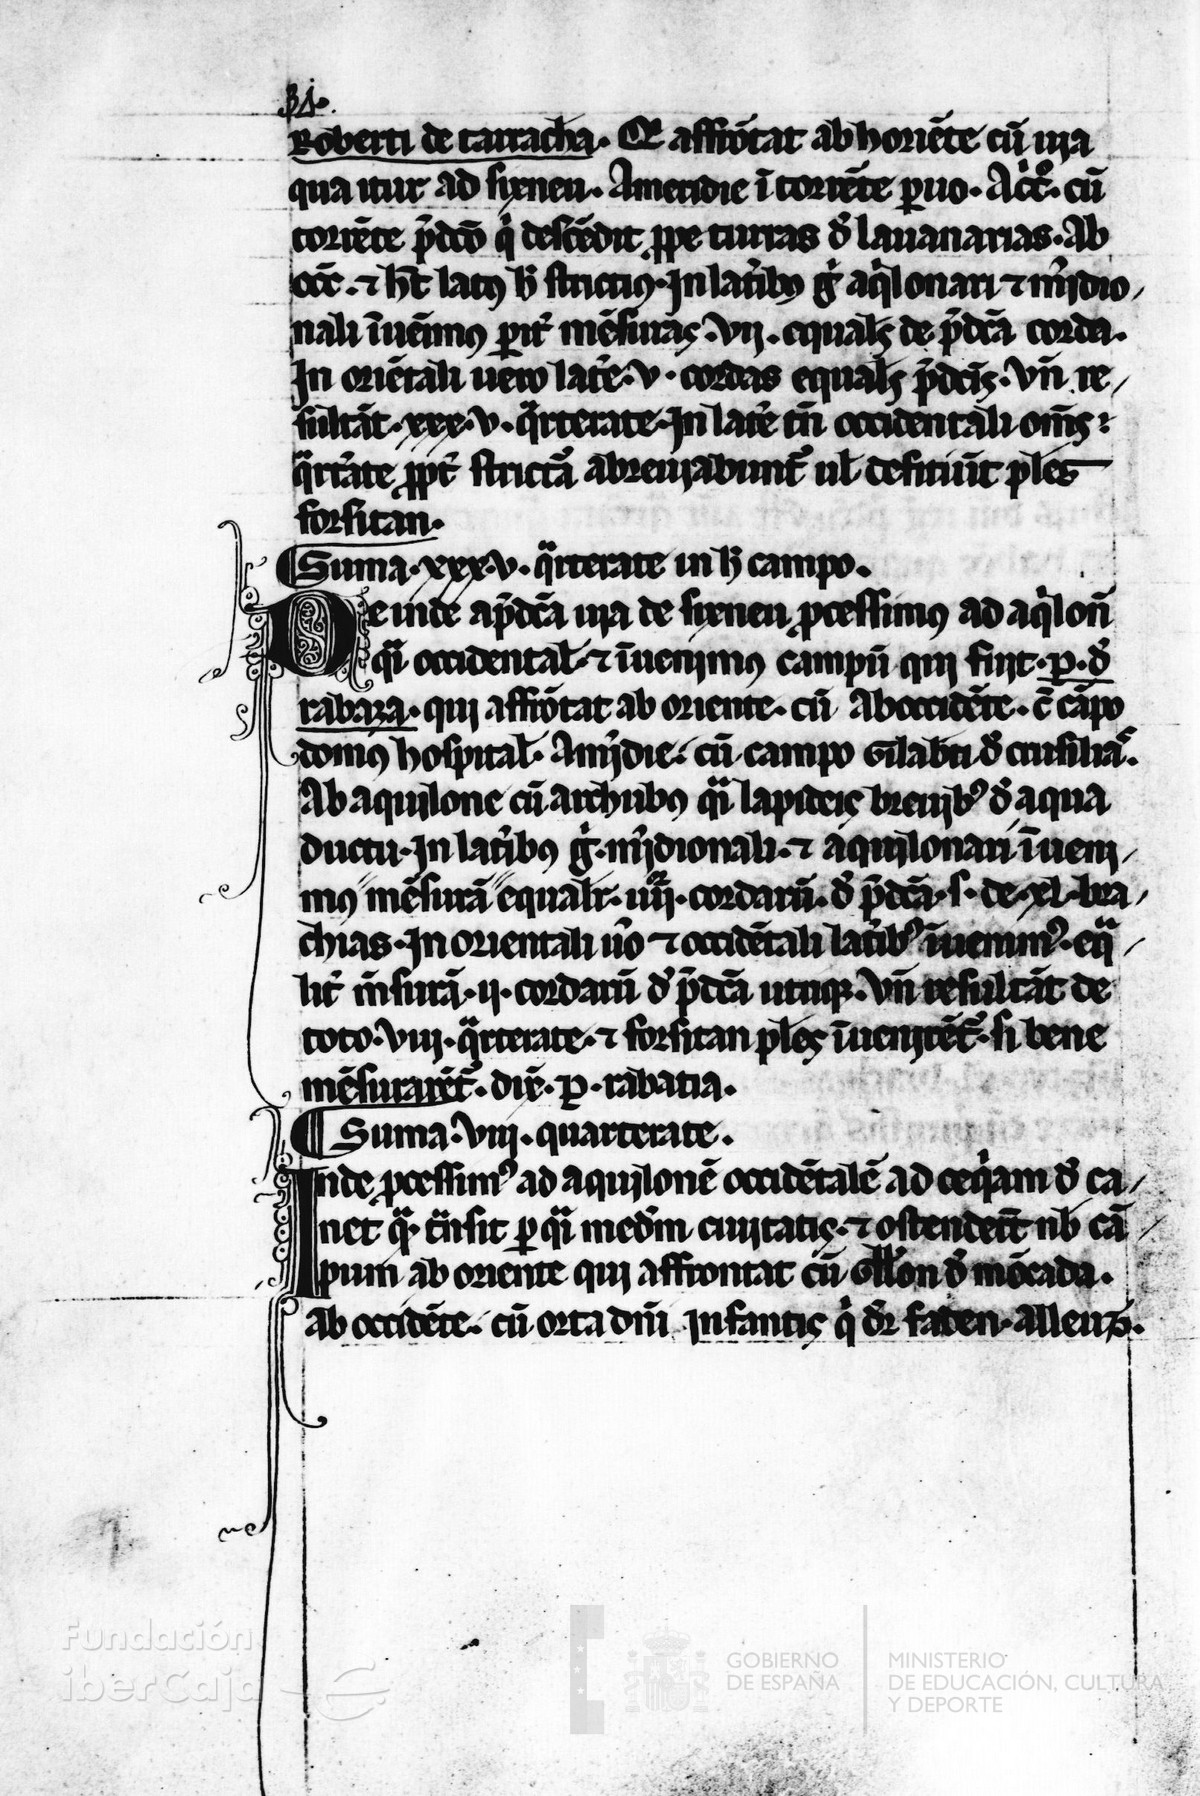 31.
Roberti de tarracha. Et affrōtat ab horiēte cū uia
qua itur ad sixneu. A meridie ī torrēte ꝑuo. A cc̄. cū
torrēte p̄dc̄o q̇ descēdit ꝓpe turras đ lauanarias. Ab
occ̄. ⁊ hꝰ latꝰ strictiꝰ. In latib; aq̇lonari ⁊ mīdio
nali īuenimꝰ mēsuras .vii. equales de p̄dc̄a corda.
In oriētali uero late .v. cordas equales p̄dc̄is. Vñ re
sultāt .xxx.v. q̈rterate. In late tn̄ occidentali om̄s
q̈rtate ꝓpt̄ strictā abreuiabunt̄ ul̄ defitiūt ples
forsitan.
¶ Suma .xxx.v. q̈rterate in h̄ campo.
Deinde a p̄dc̄a uia de sixneu ꝓcessimꝰ ad aq̇loñ
q̈i occidental̄. ⁊ īuenimꝰ campū qui fuit .p. đ
rabaza. qui affrōtat ab oriente. cū Ab occidēte. c̄ cāpo
domꝰ hospital̄. A mīdie. cū campo Gilabti đ crusiliā.
Ab aquilone cū archubꝰ q̈i lapideis breuibꝰ đ aqua
ductu. In latibꝰ g̊. mīdionali. ⁊ aquilonari īueni
mꝰ mēsurā equalr̄. iiii. cordarū. đ p̄dc̄a .s. de .xl. bra
chias. In orientali ūo ⁊ occidētali latibꝰ īuenimꝰ. eq̄
lit̄ m̄surā .ii. cordarū đ p̄dc̄a utriq;. Vñ resultāt de
toto .viii. q̈rterate. ⁊ forsitan ples īuenirēt̄. si bene
mēsurarēt̄. dix̄ .p. rabatia.
¶ Suma .viii. quarterate.
Inde ꝓcessimꝰ ad aquilonē occidētalē ad ceq̇am đ ca
net q̄ t̄nsit ꝑ q̈i medm̄ ciuitatis. ⁊ ostenderūt nb̄ cā
pum ab oriente qui affrontat cū Gll̄on đ mōcada.
Ab occidēte. cū orta dn̄i Infantis q̇ đr faten. alleuz.
Fundación
iberCaja
GOBIERNO
DE ESPAÑA
MINISTERIO
DE EDUCACIÓN, CULTURA
Y DEPORTE